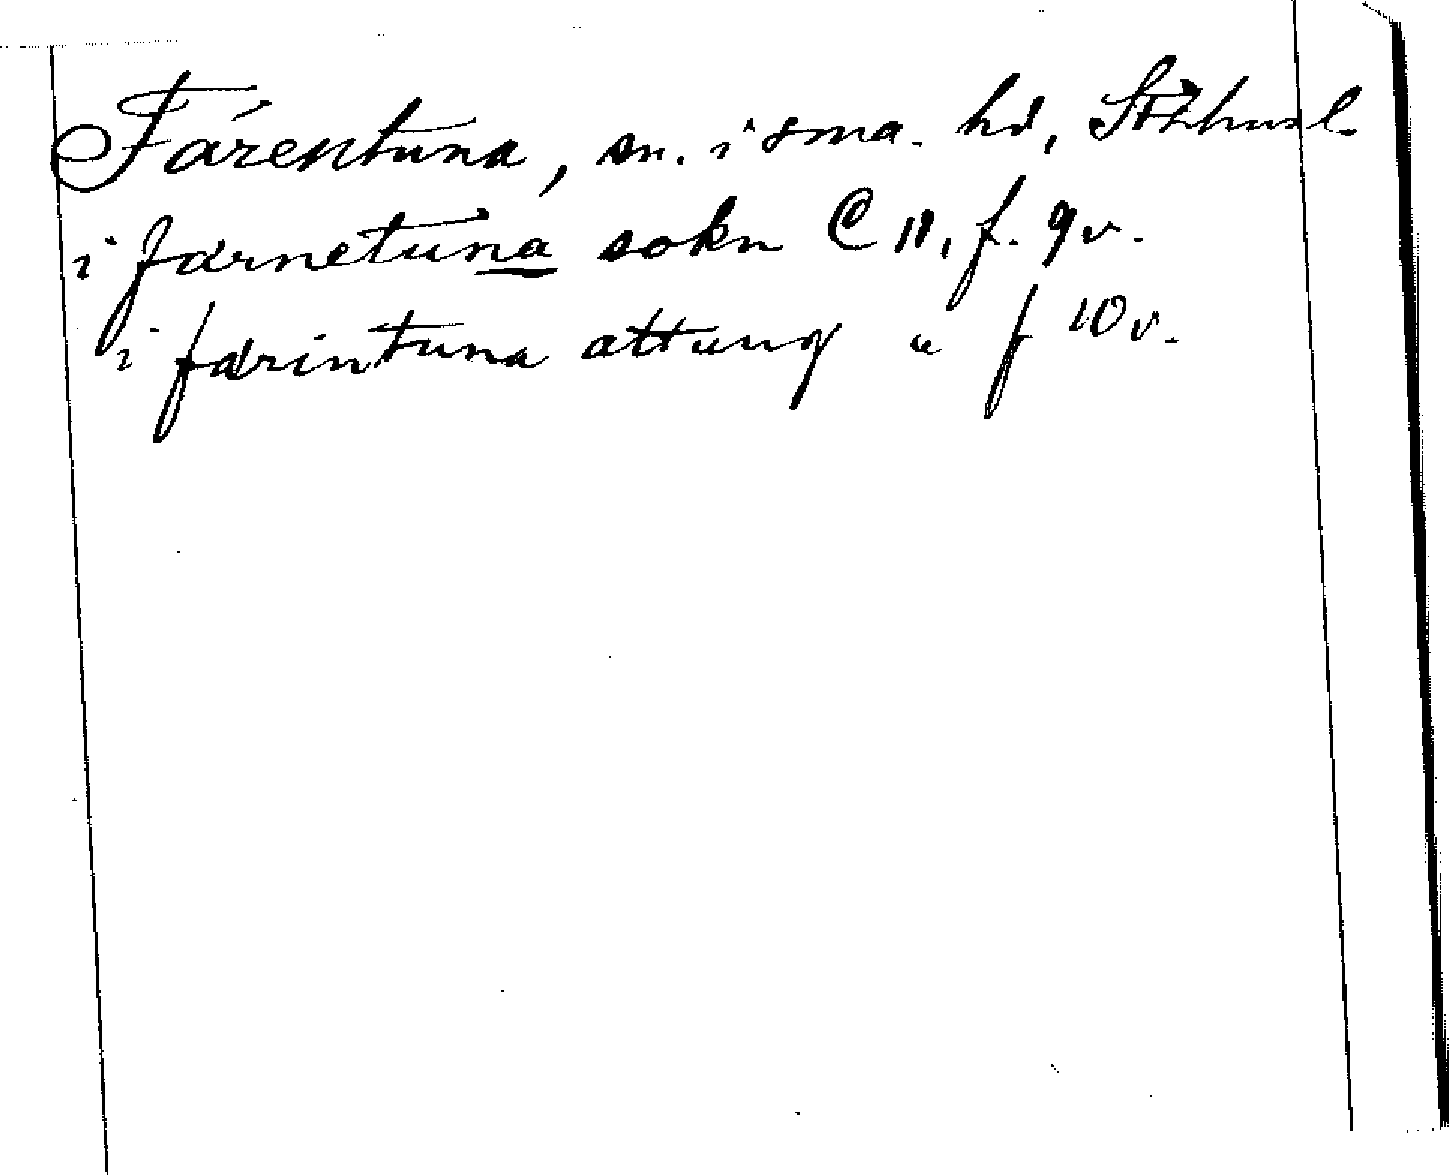 Färentuna, sn. i sma. hd, Sthhusl.
i färnetuna sokn C 11, f. 9 v.
i färintuna attung " f 10 v.